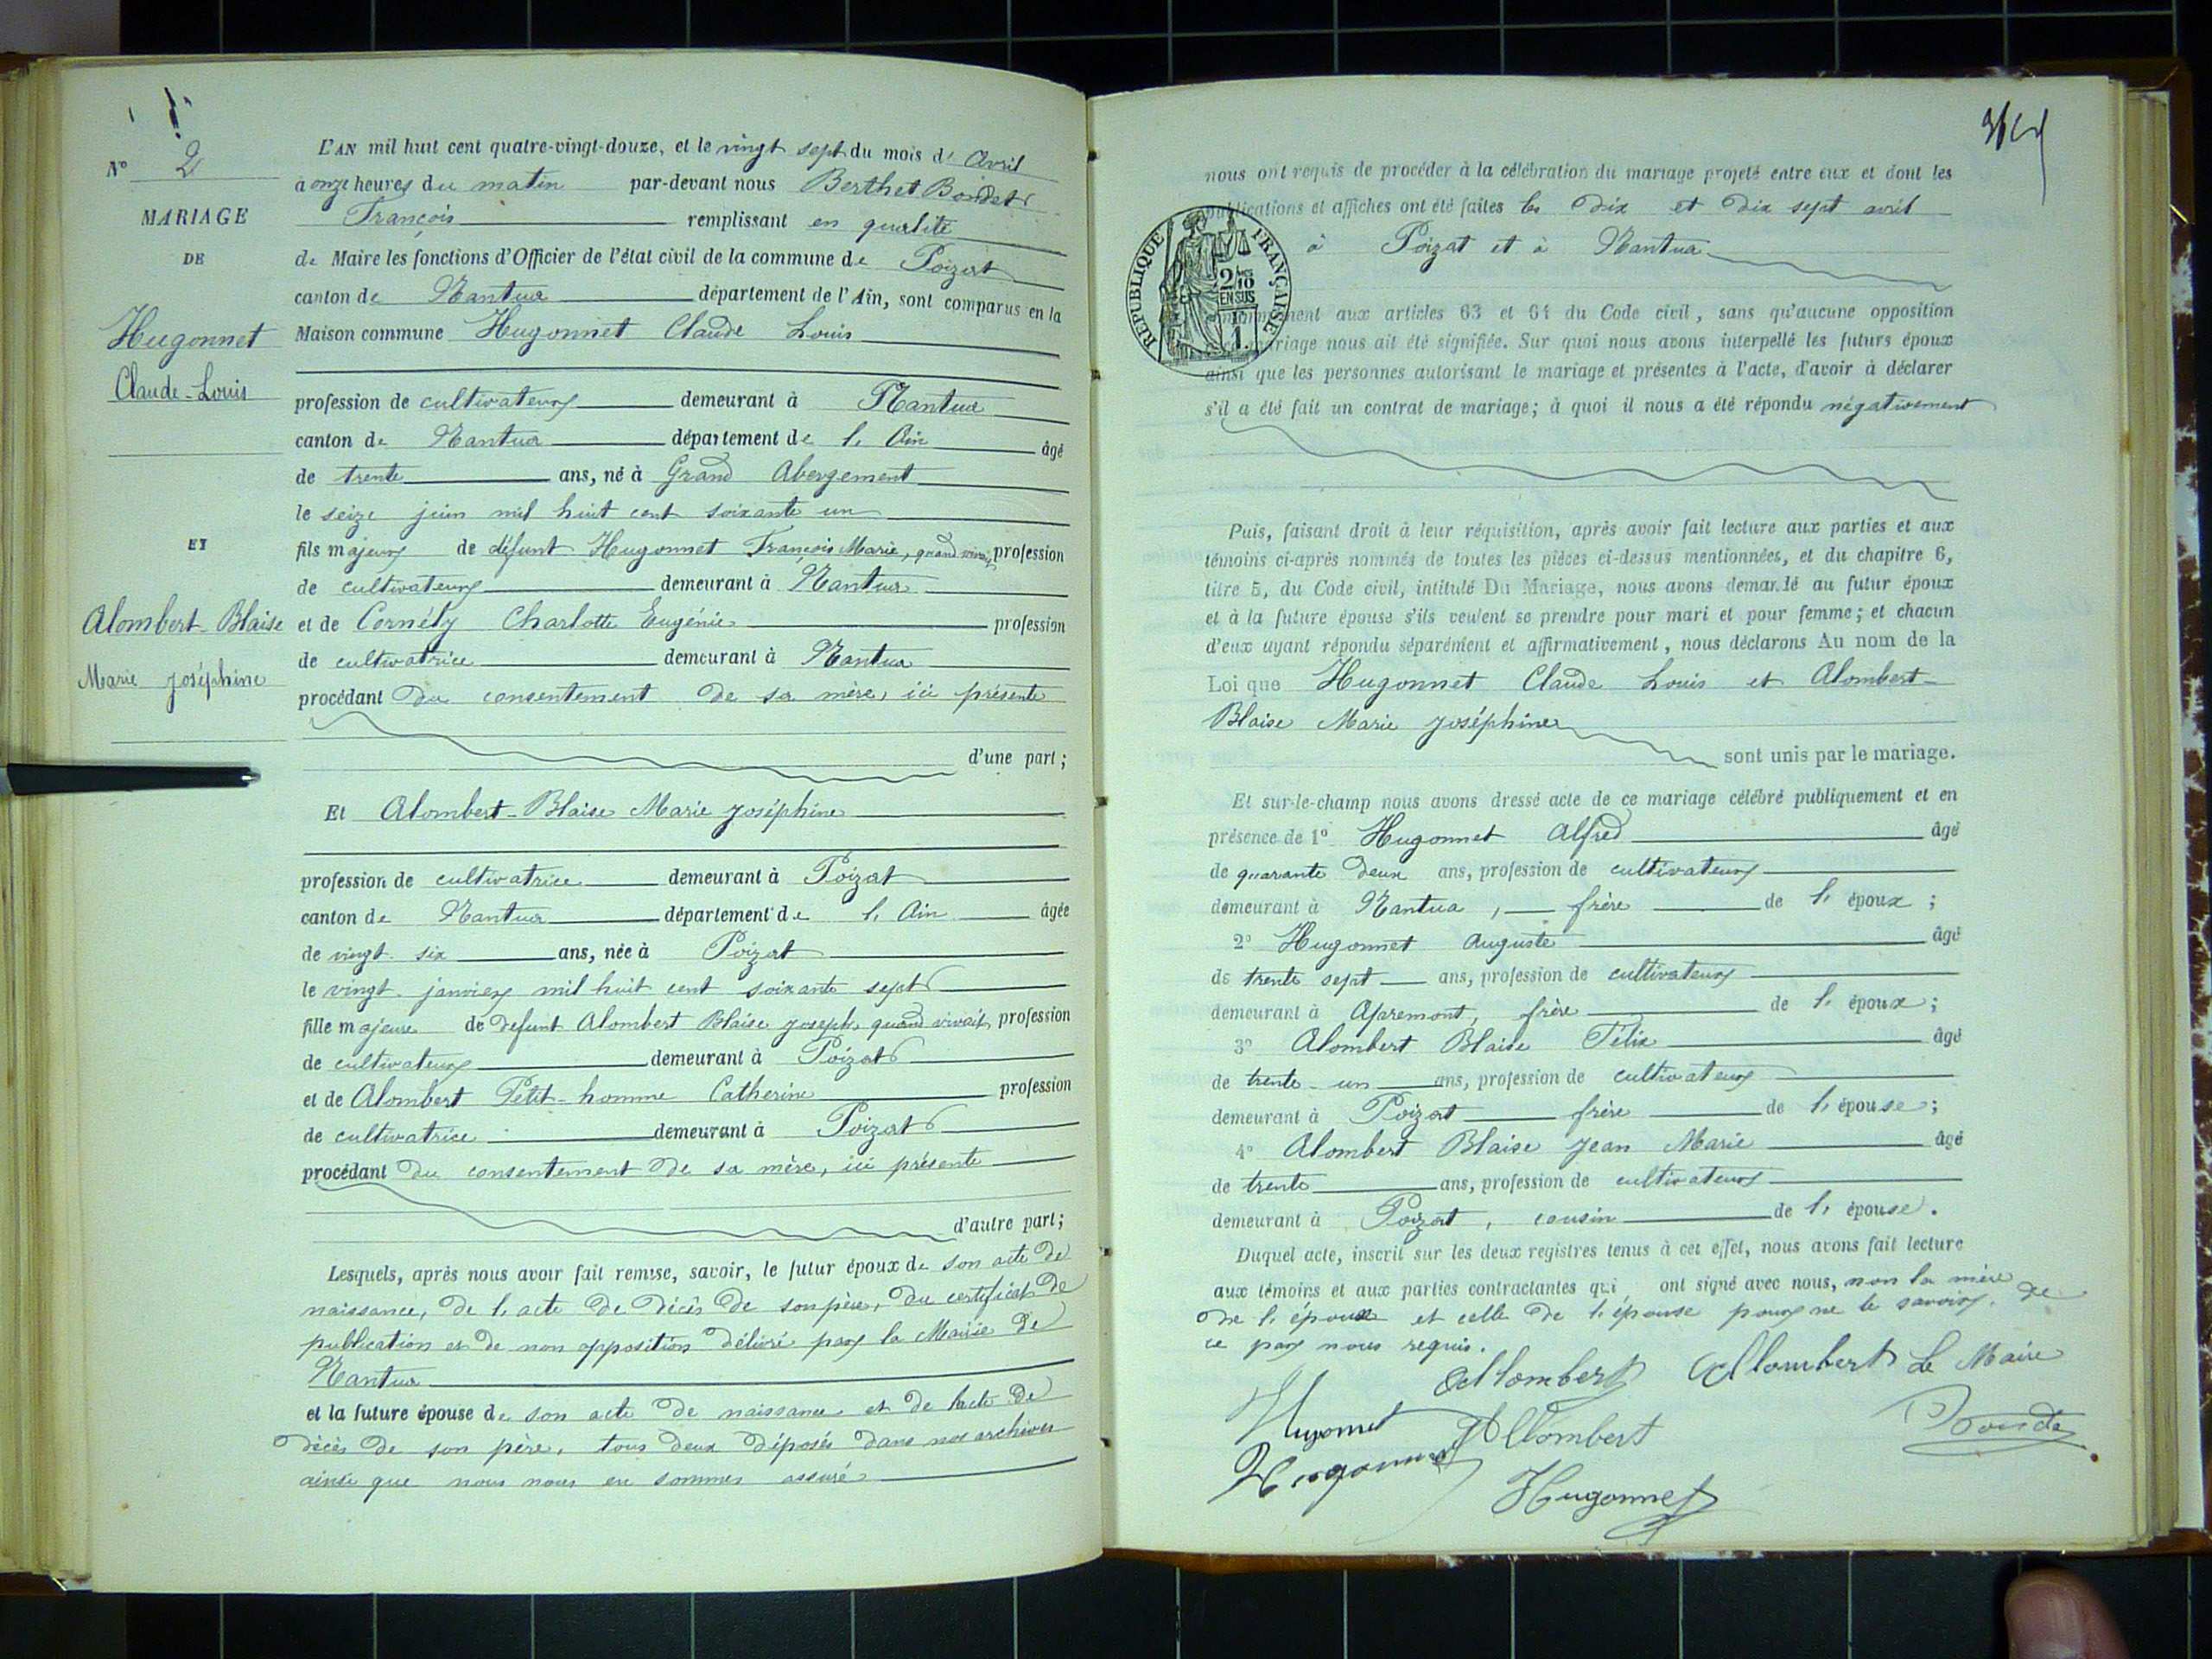 N° 2
MARIAGE
DE
Hugonnet
Claude-Louis
ET
Alombert-Blaise
Marie Joséphine
L'AN mil huit cent quatre-vingt-douze, et le vingt sept du mois d'Avril
à onze heures du matin par-devant nous Berthet Bondet
François remplissant en qualité
de Maire les fonctions d'Officier de l'état civil de la commune de Poizat
canton de Nantua département de l'Ain, sont comparus en la
Maison commune Hugonnet Claude Louis
profession de cultivateur demeurant à Nantua
canton de Nantua département de l'Ain âgé
de trente ans, né à Grand Abergement
le seize juin mil huit cent soixante un
fils majeur de défunt Hugonnet François Marie, quand vivait, profession
de cultivateur demeurant à Nantua
et de Cornély Charlotte Eugénie profession
de cultivatrice demeurant à Nantua
procédant du consentement de sa mère, ici présente
d'une part;
Et Alombert-Blaise Marie Joséphine
profession de cultivatrice demeurant à Poizat
canton de Nantua département de l'Ain âgée
de vingt-six ans, née à Poizat
le vingt janvier mil huit cent soixante sept
fille majeure de defunt Alombert Blaise Joseph, quand vivait, profession
de cultivateur demeurant à Poizat
et de Alombert Petit-homme Catherine profession
de cultivatrice demeurant à Poizat
procédant du consentement de sa mère, ici présente
d'autre part;
Lesquels, après nous avoir fait remise, savoir, le futur époux de son acte de
naissance, de l'acte de décès de son père, du certificat de
publication et de non opposition délivré par la Mairie de
Nantua
et la future épouse de son acte de naissance et de l'acte de
décès de son père, tous deux déposés dans nos archives
ainsi que nous nous en sommes assuré
nous ont requis de procéder à la célébration du mariage projeté entre eux et dont les
publications et affiches ont été faites les dix et dix sept avril
à Poizat et à Nantua
REPUBLIQUE FRANÇAISE
2/10
EN SUS
conformément aux articles 63 et 64 du Code civil, sans qu'aucune opposition
mariage nous ait été signifiée. Sur quoi nous avons interpellé les futurs époux
ainsi que les personnes autorisant le mariage et présentes à l'acte, d'avoir à déclarer
s'il a été fait un contrat de mariage; à quoi il nous a été répondu négativement
Puis, faisant droit à leur réquisition, après avoir fait lecture aux parties et aux
témoins ci-après nommés de toutes les pièces ci-dessus mentionnées, et du chapitre 6,
titre 5, du Code civil, intitulé Du Mariage, nous avons demandé au futur époux
et à la future épouse s'ils veulent se prendre pour mari et pour femme; et chacun
d'eux ayant répondu séparément et affirmativement, nous déclarons Au nom de la
Loi que Hugonnet Claude Louis et Alombert-
Blaise Marie Joséphine
sont unis par le mariage.
Et sur-le-champ nous avons dressé acte de ce mariage célébré publiquement et en
présence de 1° Hugonnet Alfred âgé
de quarante deux ans, profession de cultivateur
demeurant à Nantua, frère de l'époux;
2° Hugonnet Auguste âgé
de trente sept ans, profession de cultivateur
demeurant à Apremont, frère de l'époux;
3° Alombert Blaise Félix âgé
de trente-un ans, profession de cultivateur
demeurant à Poizat frère de l'épouse;
4° Alombert Blaise Jean Marie âgé
de trente ans, profession de cultivateur
demeurant à Poizat, cousin de l'épouse.
Duquel acte, inscrit sur les deux registres tenus à cet effet, nous avons fait lecture
aux témoins et aux parties contractantes qui ont signé avec nous, non la mère
de l'époux et celle de l'épouse pour ne le savoir, de
ce par nous requis.
Allombert Allombert Le Maire
Hugonnet Allombert Bondet
Hugonnet
Hugonnet